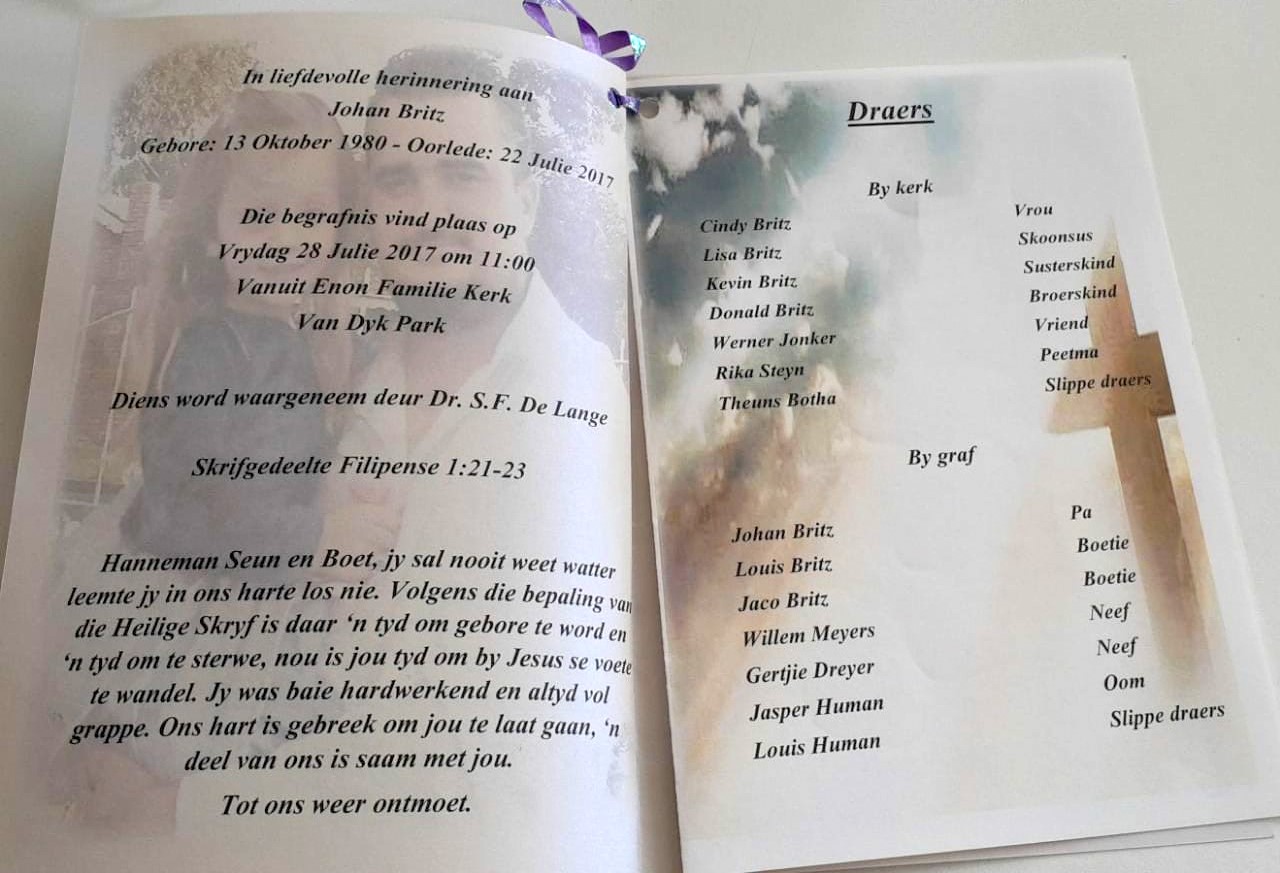 In liefdevolle herinnering aan
Johan Britz
Gebore: 13 Oktober 1980 - Oorlede: 22 Julie 2017
Die begrafnis vind plaas op
Vrydag 28 Julie 2017 om 11:00
Vanuit Enon Familie Kerk
Van Dyk Park
Diens word waargeneem deur Dr. S.F. De Lange
Skrifgedeelte Filipense 1:21-23
Hanneman Seun en Boet, jy sal nooit weet watter
leemte jy in ons harte los nie. Volgens die bepaling van
die Heilige Skryf is daar ‘n tyd om gebore te word en
‘n tyd om te sterwe, nou is jou tyd om by Jesus se voete
te wandel. Jy was baie hardwerkend en altyd vol
grappe. Ons hart is gebreek om jou te laat gaan, ‘n
deel van ons is saam met jou.
Tot ons weer ontmoet.
Draers
By kerk
Cindy Britz Vrou
Lisa Britz Skoonsus
Kevin Britz Susterskind
Donald Britz Broerskind
Werner Jonker Vriend
Rika Steyn Peetma
Theuns Botha Slippe draers
By graf
Johan Britz Pa
Louis Britz Boetie
Jaco Britz Boetie
Willem Meyers Neef
Gertjie Dreyer Neef
Jasper Human Oom
Louis Human Slippe draers